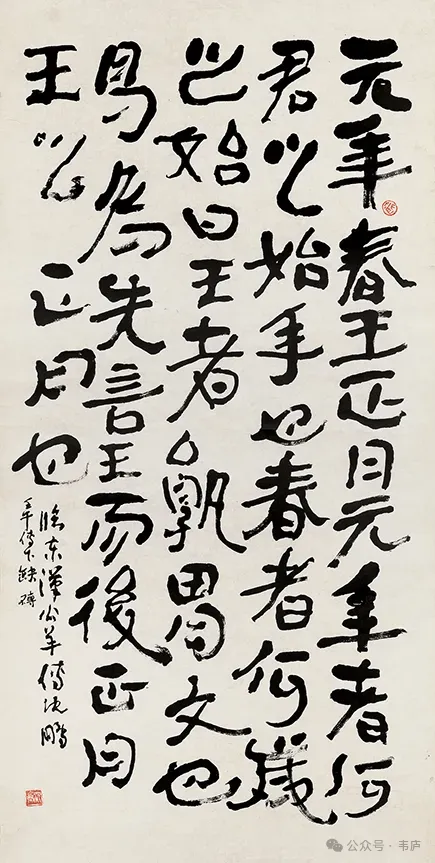 元年春王正月元年者何
君以始年也春者何歲
之始曰王者孰胃文也
曷為先言王而後正月
王以正月也
臨東漢公羊傳沈鵬
傳下缺磚
公众号·韦庐